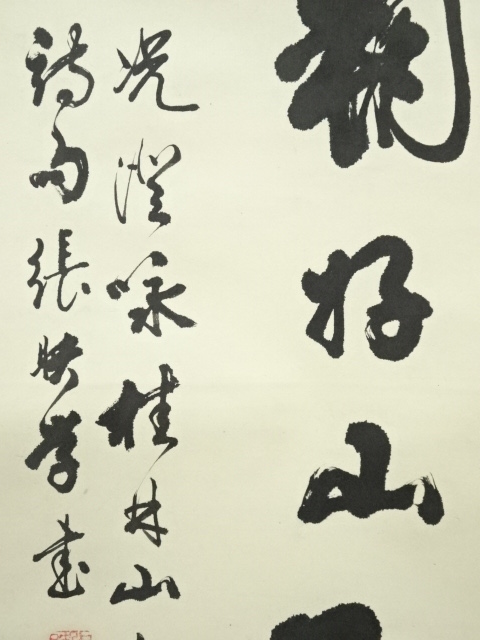 好山
况澄咏桂林山
詩句張映学書